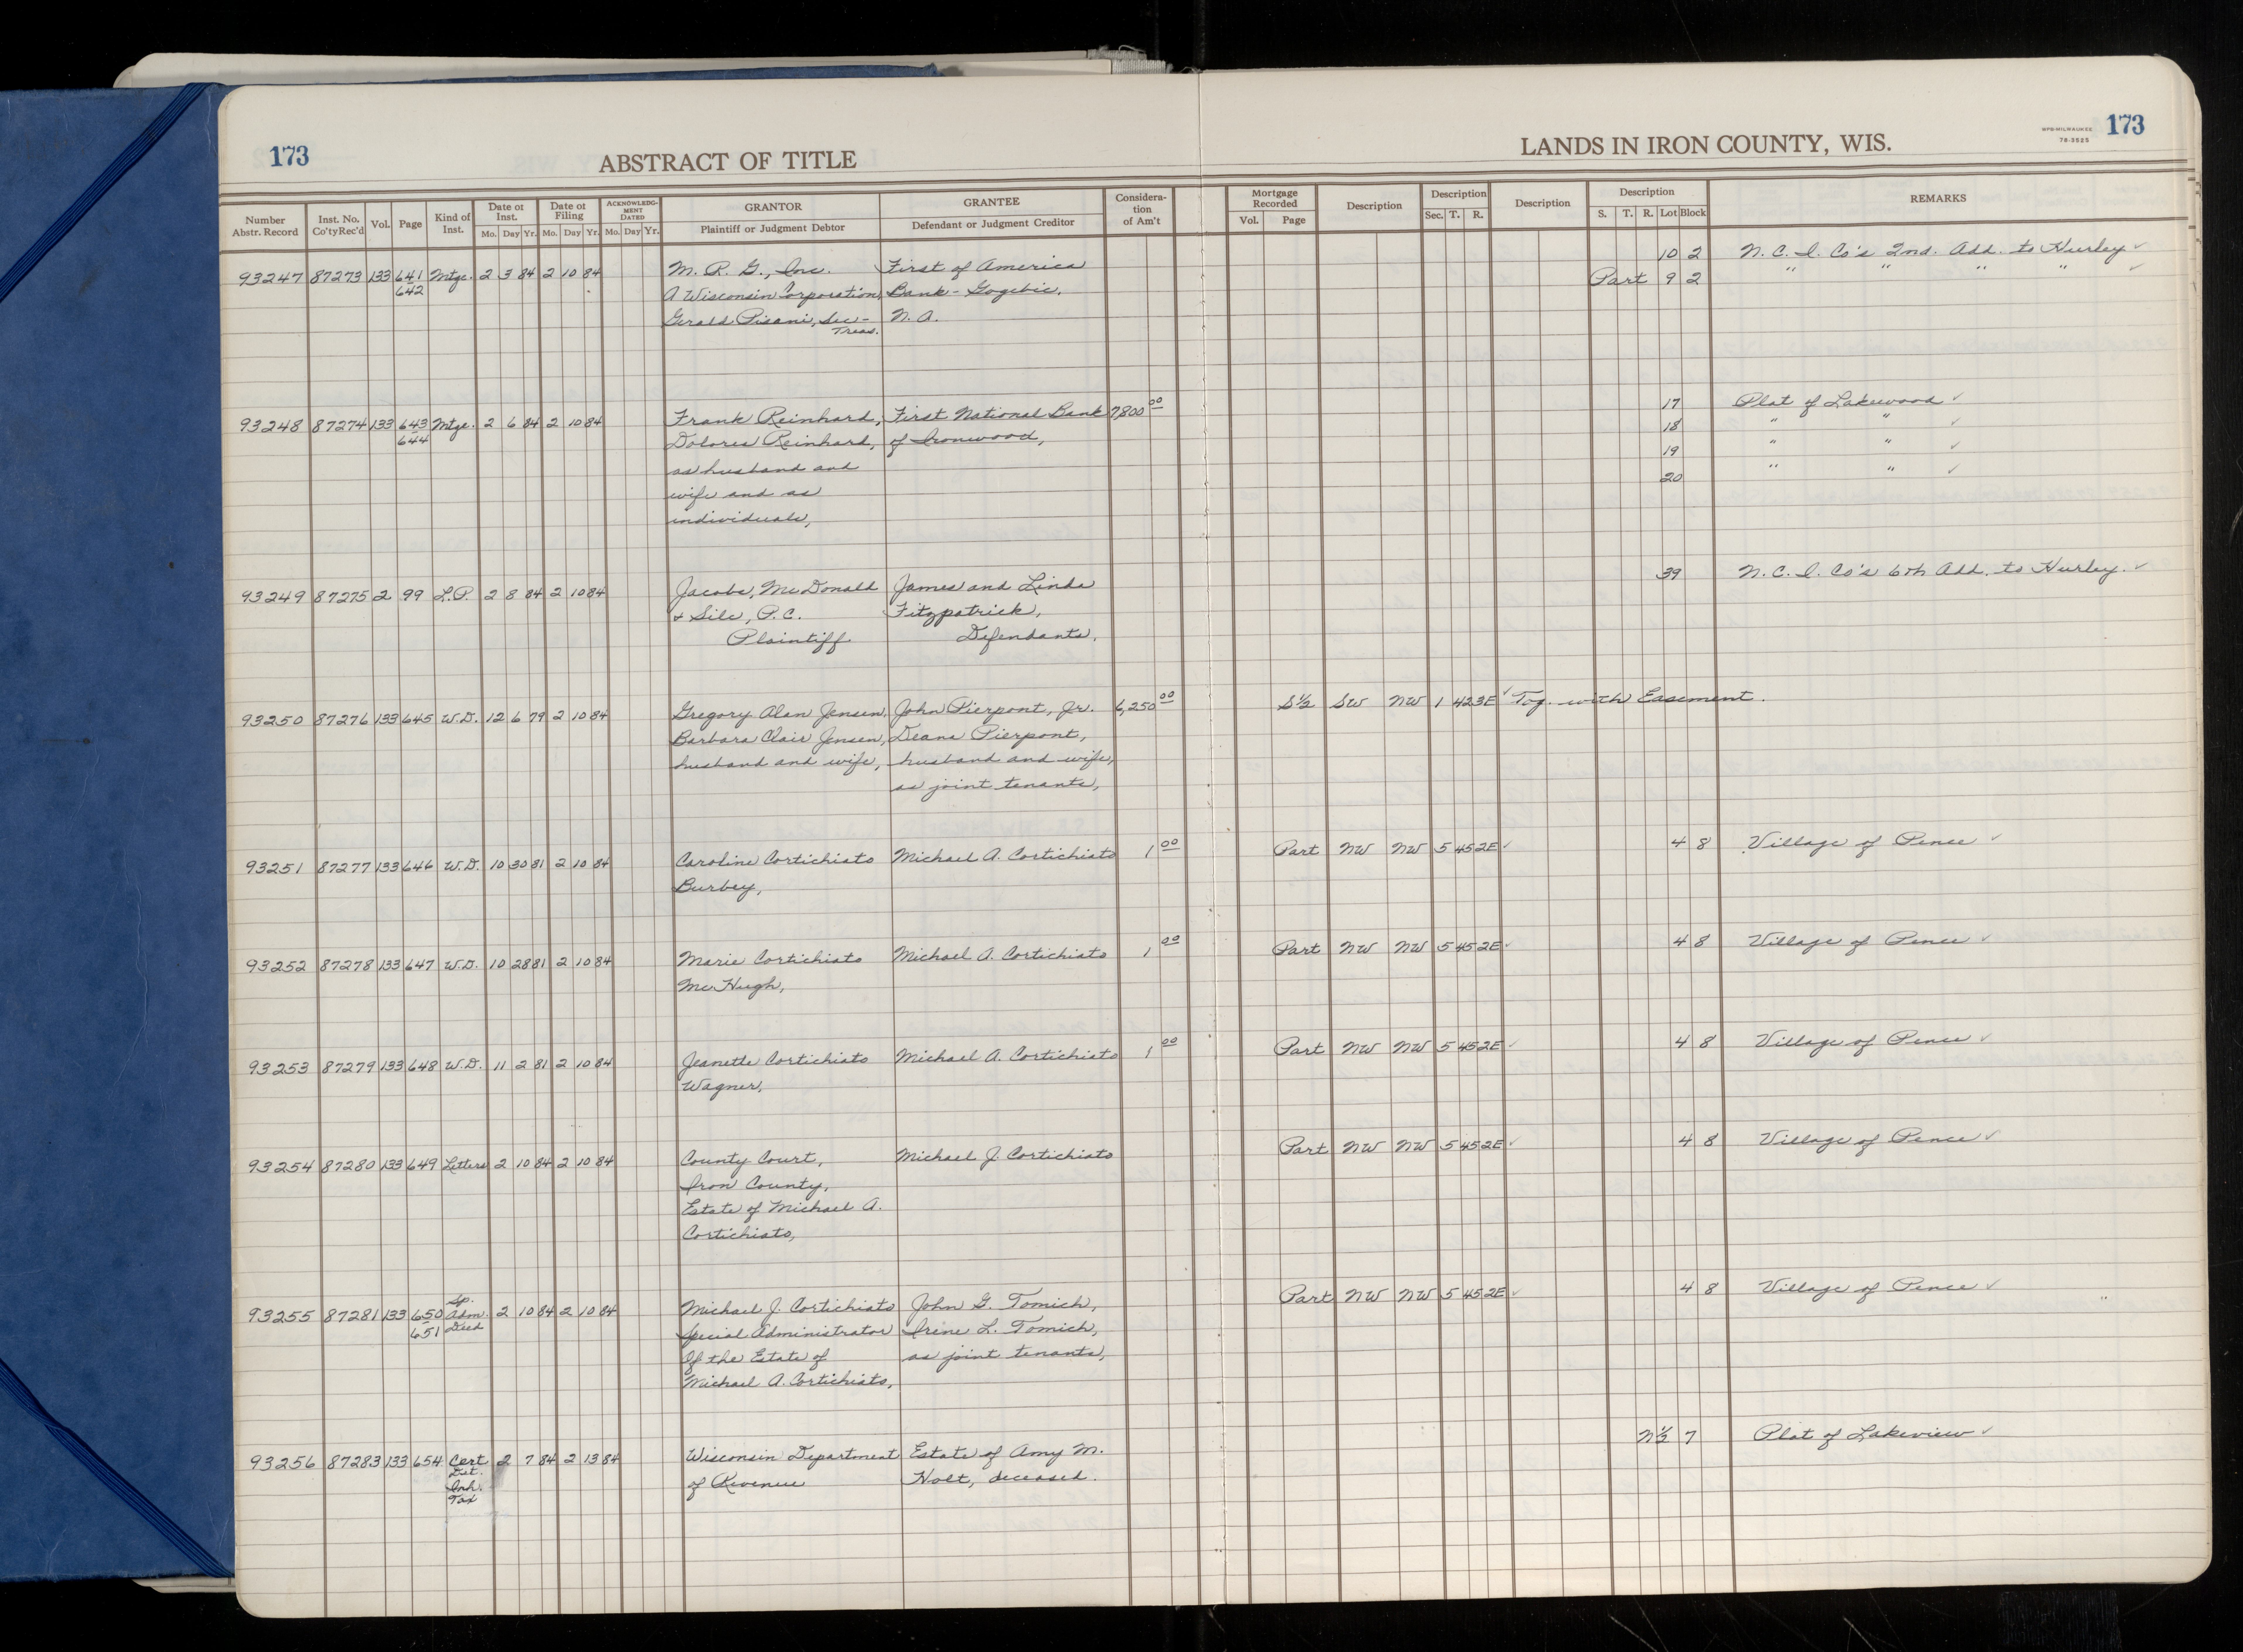 173
ABSTRACT OF TITLE
LANDS IN IRON COUNTY, WIS.
MPB-MILWAUKEE
78-3525
173
Number Abstr. Record | Inst. No. Co'ty Rec'd | Vol. | Page | Kind of Inst. | Date of Inst. Mo. Day Yr. | Date of Filing Mo. Day Yr. | ACKNOWLEDGMENT DATED Mo. Day Yr. | GRANTOR Plaintiff or Judgment Debtor | GRANTEE Defendant or Judgment Creditor | Consideration of Am't | Mortgage Recorded Vol. Page | Description | Description Sec. T. R. | Description | Description S. T. R. Lot Block | REMARKS
10 2 N. C. I. Co's 2nd. Add. to Hurley ✓
93247 87273 133 641 Mtge. 2 3 84 2 10 84 M. R. G., Inc. First of America Part 9 2 " " " " ✓
642 A Wisconsin Corporation, Bank - Gogebic,
Gerald Pisani, Sec - N. A.
Treas.
17 Plat of Lakewood ✓
93248 87274 133 643 Mtge. 2 6 84 2 10 84 Frank Reinhard, First National Bank 7,800 00 18 " " ✓
644 Dolores Reinhard, of Ironwood, 19 " " ✓
as husband and 20 " " ✓
wife and as
individuals,
39 N. C. I. Co's 6th Add. to Hurley. ✓
93249 87275 2 99 L.P. 2 8 84 2 10 84 Jacobs, McDonald James and Linda
+ Silc, P.C. Fitzpatrick,
Plaintiff Defendants.
93250 87276 133 645 W.D. 12 6 79 2 10 84 Gregory Alan Jensen, John Pierpont, Jr. 6,250 00 S½ SW NW 1 42 3E ✓ Tog. with Easement.
Barbara Clair Jensen, Deana Pierpont,
husband and wife, husband and wife,
as joint tenants,
93251 87277 133 646 W.D. 10 30 81 2 10 84 Caroline Cortichiato Michael A. Cortichiato 1 00 Part NW NW 5 45 2E ✓ 4 8 Village of Pence ✓
Burbey,
93252 87278 133 647 W.D. 10 28 81 2 10 84 Marie Cortichiato Michael A. Cortichiato 1 00 Part NW NW 5 45 2E ✓ 4 8 Village of Pence ✓
McHugh,
93253 87279 133 648 W.D. 11 2 81 2 10 84 Jeanette Cortichiato Michael A. Cortichiato 1 00 Part NW NW 5 45 2E ✓ 4 8 Village of Pence ✓
Wagner,
93254 87280 133 649 Letters 2 10 84 2 10 84 County Court, Michael J. Cortichiato Part NW NW 5 45 2E ✓ 4 8 Village of Pence ✓
Iron County,
Estate of Michael A.
Cortichiato,
Sp.
93255 87281 133 650 Adm. 2 10 84 2 10 84 Michael J. Cortichiato John G. Tomich, Part NW NW 5 45 2E ✓ 4 8 Village of Pence ✓
651 Deed Special Administrator Irene L. Tomich,
Of the Estate of as joint tenants,
Michael A. Cortichiato,
93256 87283 133 654 Cert 2 7 84 2 13 84 Wisconsin Department Estate of Amy M. N½ 7 Plat of Lakeview ✓
Det. of Revenue Holt, deceased.
Inh.
Tax